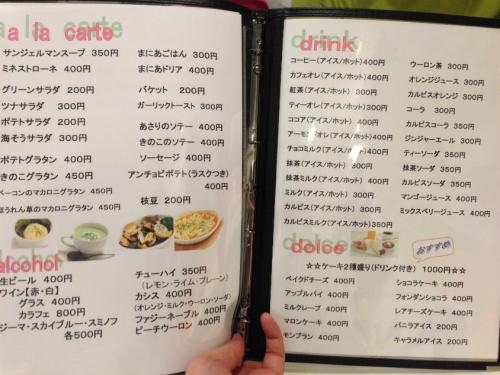 a la carte
サンジェルマンスープ 350円
ミネストローネ 400円
グリーンサラダ 200円
ツナサラダ 300円
ポテトサラダ 200円
海そうサラダ 300円
ポテトグラタン 400円
きのこグラタン 450円
ベーコンのマカロニグラタン 450円
ほうれん草のマカロニグラタン 450円
まにあごはん 300円
まにあドリア 400円
バケット 200円
ガーリックトースト 300円
あさりのソテー 400円
きのこのソテー 400円
ソーセージ 400円
アンチョビポテト(ラスクつき)
400円
枝豆 200円
alcohol
生ビール 400円
ワイン【赤・白】
グラス 400円
カラフェ 800円
ジーマ・スカイブルー・スミノフ
各500円
チューハイ 350円
(レモン・ライム・プレーン)
カシス 400円
(オレンジ・ミルク・ウーロン・ソーダ)
ファジーネーブル 400円
ピーチウーロン 400円
drink
コーヒー(アイス/ホット) 400円
カフェオレ(アイス/ホット) 400円
紅茶(アイス/ホット) 300円
ティーオレ(アイス/ホット) 300円
ココア(アイス/ホット) 400円
アーモンドオレ(アイス/ホット) 400円
チョコミルク(アイス/ホット) 400円
抹茶(アイス/ホット) 300円
抹茶ミルク(アイス/ホット) 400円
ミルク(アイス/ホット) 300円
カルピス(アイス/ホット) 300円
カルピスミルク(アイス/ホット) 350円
ウーロン茶 300円
オレンジジュース 300円
カルピスオレンジ 300円
コーラ 300円
カルピスコーラ 350円
ジンジャーエール 300円
ティーソーダ 350円
抹茶ソーダ 350円
カルピスソーダ 350円
マンゴージュース 400円
ミックスベリージュース 400円
dolce
おすすめ
☆☆ケーキ2種盛り(ドリンク付き) 1000円☆☆
ベイクドチーズ 400円
アップルパイ 400円
ミルクレープ 400円
マロンケーキ 400円
モンブラン 400円
ショコラケーキ 400円
フォンダンショコラ 400円
レアチーズケーキ 400円
バニラアイス 200円
キャラメルアイス 200円